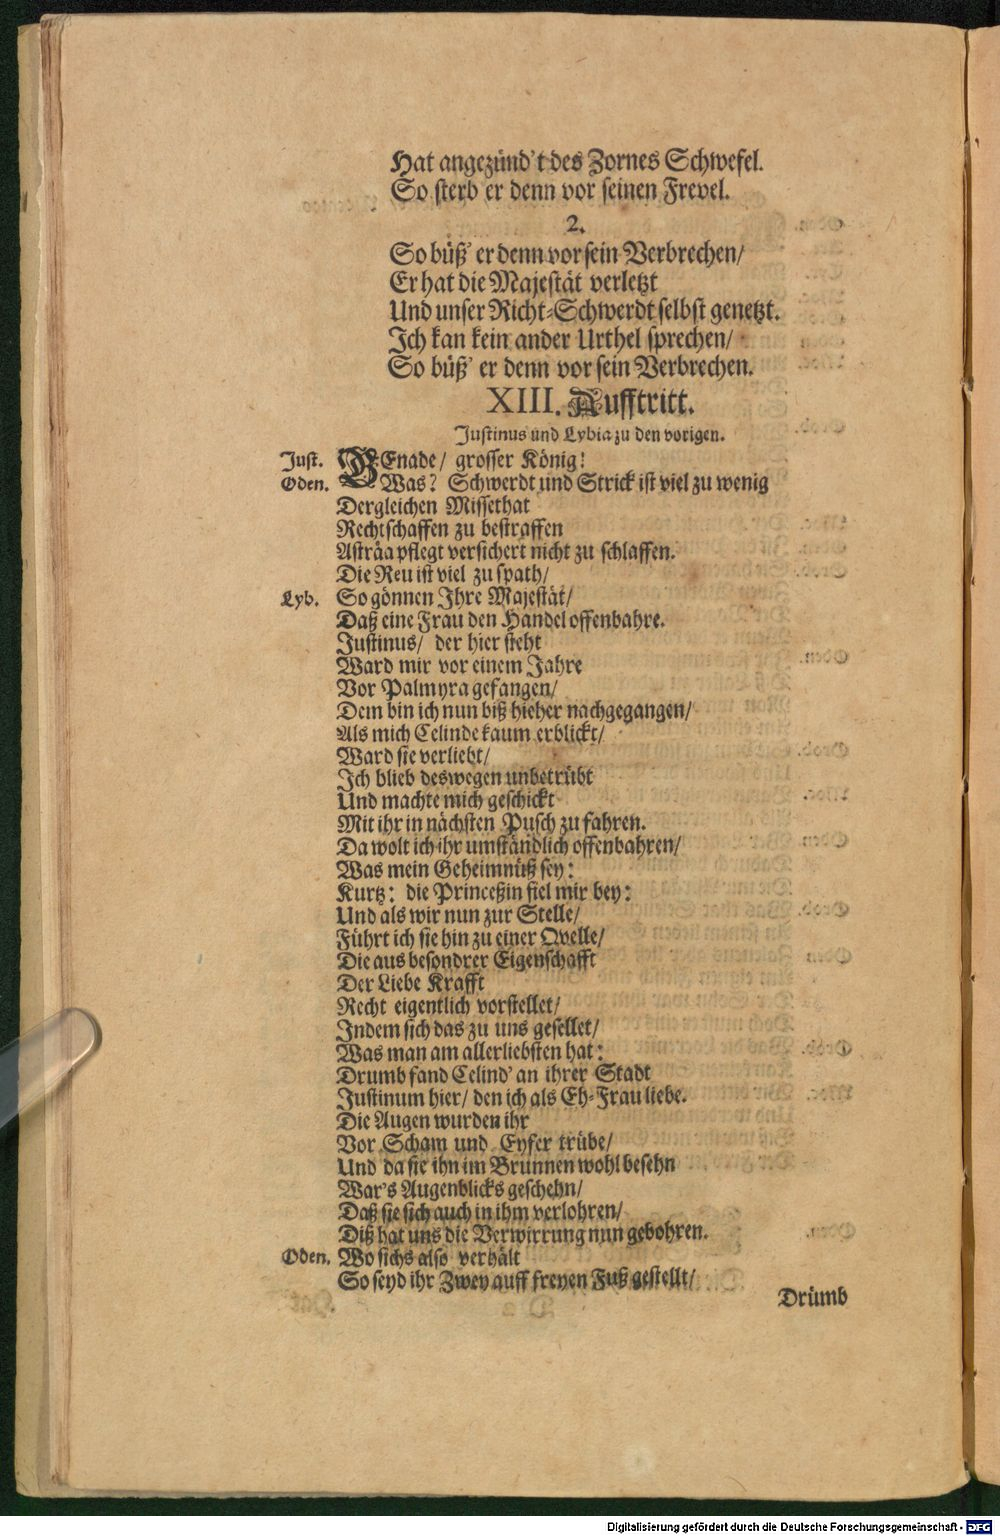 Hat angezünd't des Zornes Schwefel.
So sterb er denn vor seinen Frevel.
2.
So büß' er denn vor sein Verbrechen/
Er hat die Majestät verletzt
Und unser Richt-Schwerdt selbst genetzt.
Ich kan kein ander Urthel sprechen/
So büß' er denn vor sein Verbrechen.
XIII. Aufftritt.
Justinus und Lybia zu den vorigen.
Just. GEnade/ grosser König!
Oden. Was? Schwerdt und Strick ist viel zu wenig
Dergleichen Missethat
Rechtschaffen zu bestraffen
Asträa pflegt versichert nicht zu schlaffen.
Die Reu ist viel zu spath/
Lyb. So gönnen Ihre Majestät/
Daß eine Frau den Handel offenbahre.
Justinus/ der hier steht
Ward mir vor einem Jahre
Vor Palmyra gefangen/
Dem bin ich nun biß hieher nachgegangen/
Als mich Celinde kaum erblickt/
Ward sie verliebt/
Ich blieb deswegen unbetrübt
Und machte mich geschickt
Mit ihr in nächsten Pusch zu fahren.
Da wolt ich ihr umständlich offenbahren/
Was mein Geheimnüß sey:
Kurtz: die Princeßin fiel mir bey:
Und als wir nun zur Stelle/
Führt ich sie hin zu einer Qvelle/
Die aus besondrer Eigenschafft
Der Liebe Krafft
Recht eigentlich vorstellet/
Indem sich das zu uns gesellet/
Was man am allerliebsten hat:
Drumb fand Celind' an ihrer Stadt
Justinum hier/ den ich als Eh-Frau liebe.
Die Augen wurden ihr
Vor Scham und Eyfer trübe/
Und da sie ihn im Brunnen wohl besehn
War's Augenblicks geschehn/
Daß sie sich auch in ihm verlohren/
Diß hat uns die Verwirrung nun gebohren.
Oden. Wo sichs also verhält
So seyd ihr Zwey auff freyen Fuß gestellt/
Drümb
Digitalisierung gefördert durch die Deutsche Forschungsgemeinschaft - DFG